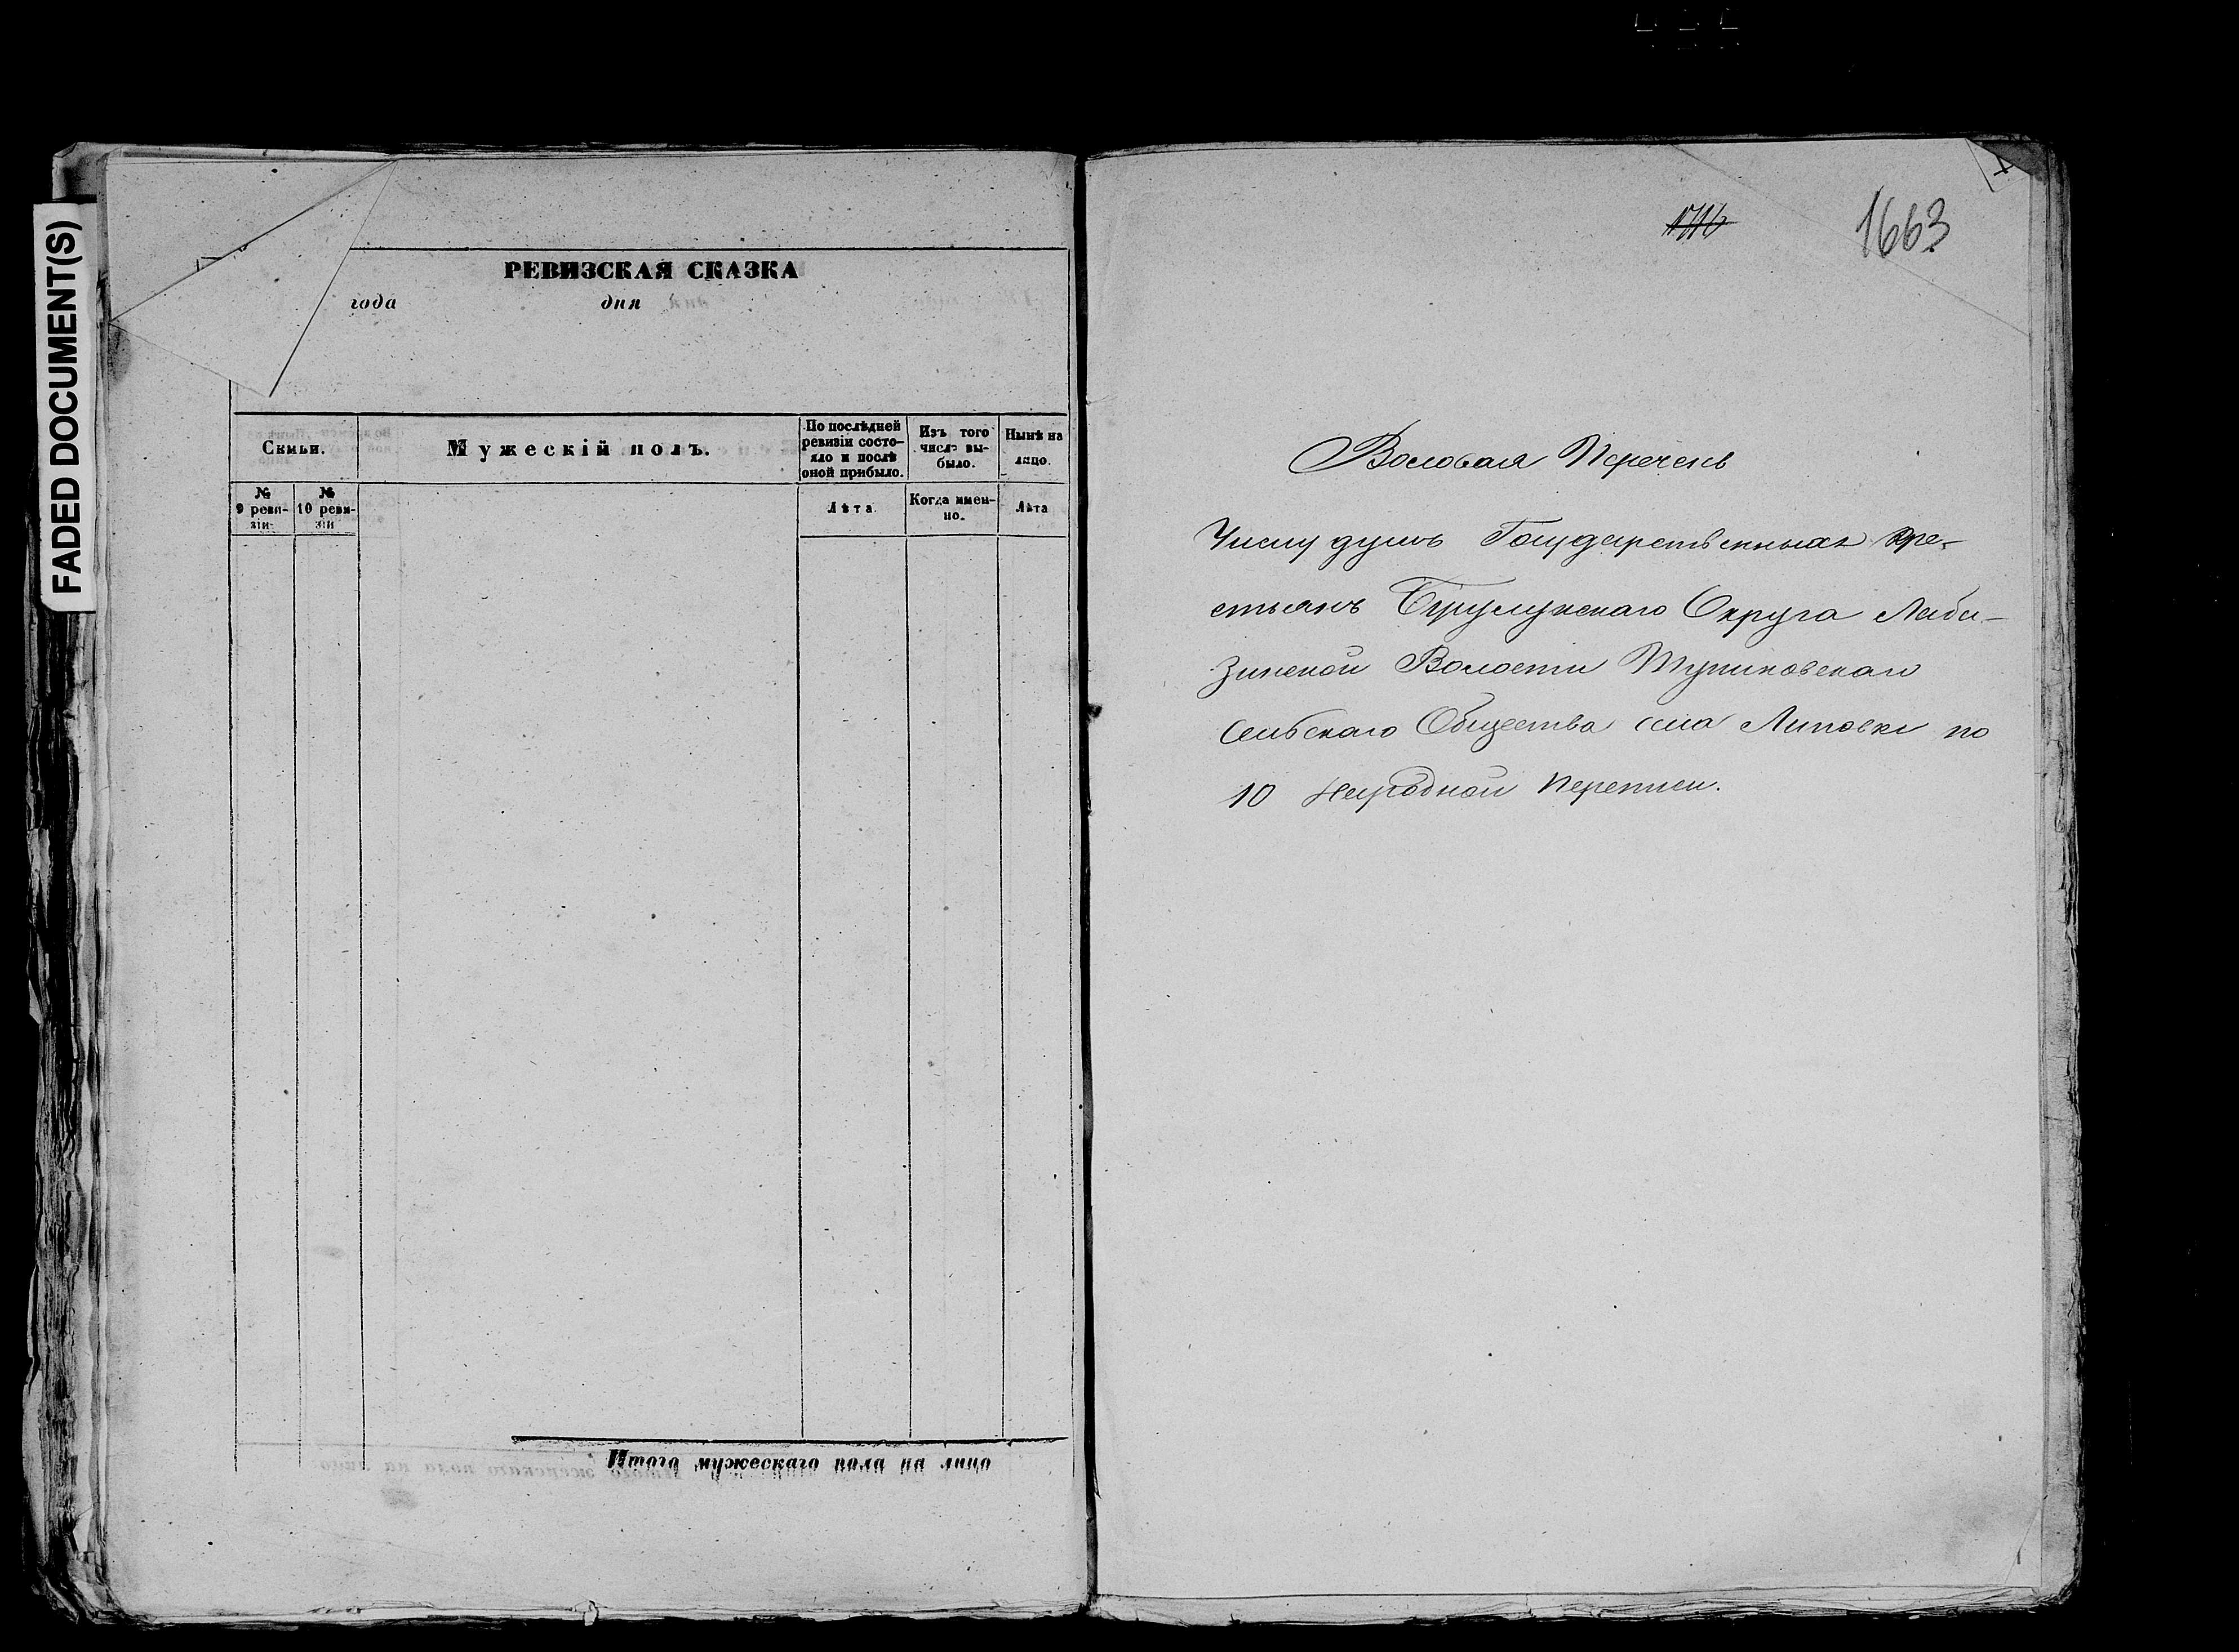 FADED DOCUMENT(S)
РЕВИЗСКАЯ СКАЗКА
года дня
Семьи.
Мужескій полъ.
По послѣдней
ревизіи состо-
яло и послѣ
оной прибыло.
Изъ того
числа вы-
было.
Нынѣ на
лицо.
№
9 реви-
зіи
№
10 реви-
зіи
Лѣта
Когда имен-
но.
Лѣта
Итого мужескаго пола на лицо
1663
Воловая Перечень
Числу душъ Государственныхъ Кре-
стьянъ Бузулукскаго Округа Лаба-
зинской Волости Тупиковскаго
Сельскаго Общества села Липовки по
10 Народной переписи.